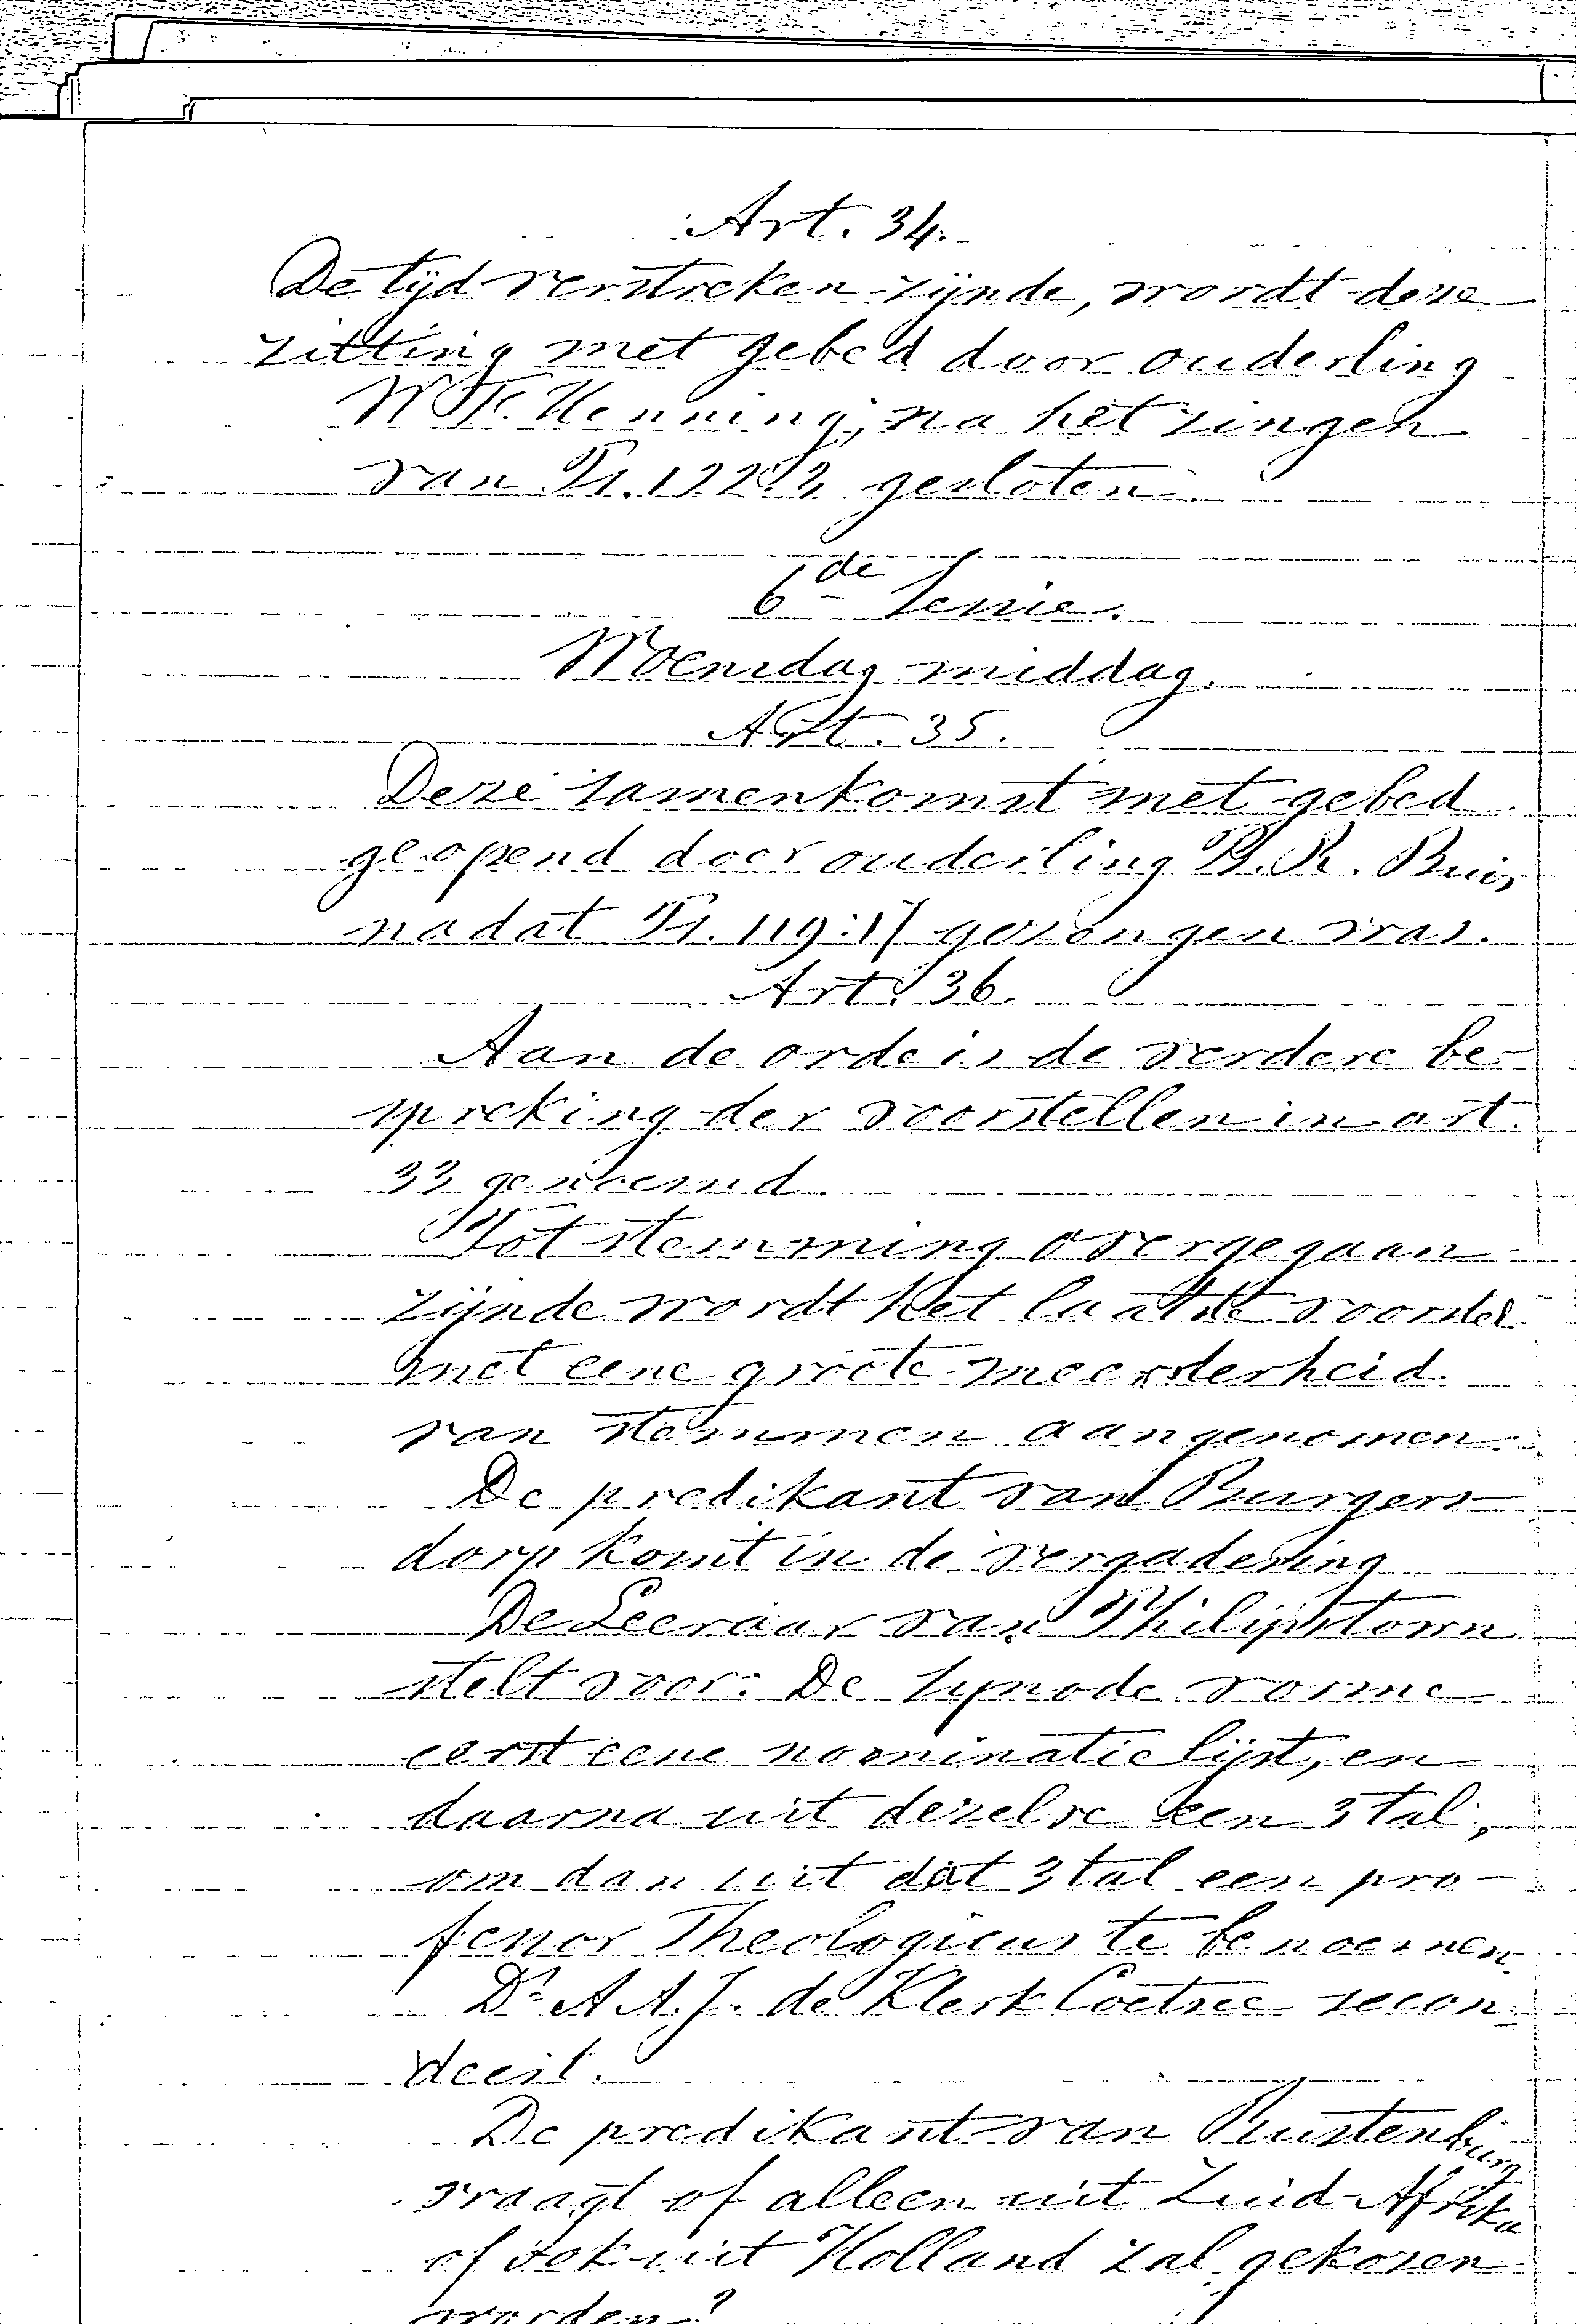 Art. 34.
De tijd verstreken zijnde, wordt deze
zitting met gebed door ouderling
W F. Henning, na het zingen
van Ps. 122:3 gesloten.
6de Sessie.
Woensdag middag.
Art. 35.
Deze samenkomst met gebed
geopend door ouderling P. R. Buis,
nadat Ps. 119:17 gezongen was.
Art. 36.
Aan de orde is de verdere be-
spreking der voorstellen in art.
33 genoemd.
Tot stemming overgegaan
zijnde wordt het laatste voorstel
met eene groote meerderheid
van stemmen aangenomen.
De predikant van Burgers-
dorp komt in de vergadering
De Leeraar van Philipstown
stelt voor: De Synode vorme
eerst eene nominatie lijst, en
daarna uit dezelve een 3tal,
om dan uit dat 3tal een pro-
fessor Theologicus te benoemen.
Ds A A. J. de Klerk Coetzee secon-
deert.
De predikant van Rustenburg
vraagt of alleen uit Zuid-Afrika
of ook uit Holland zal gekozen
worden?